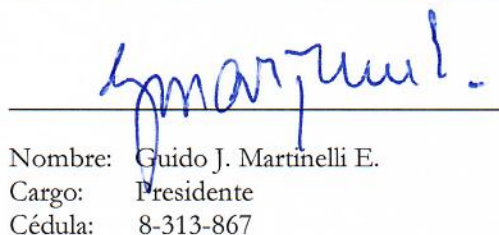 Nombre: Guido J. Martinelli E.
Cargo: Presidente
Cédula: 8-313-867